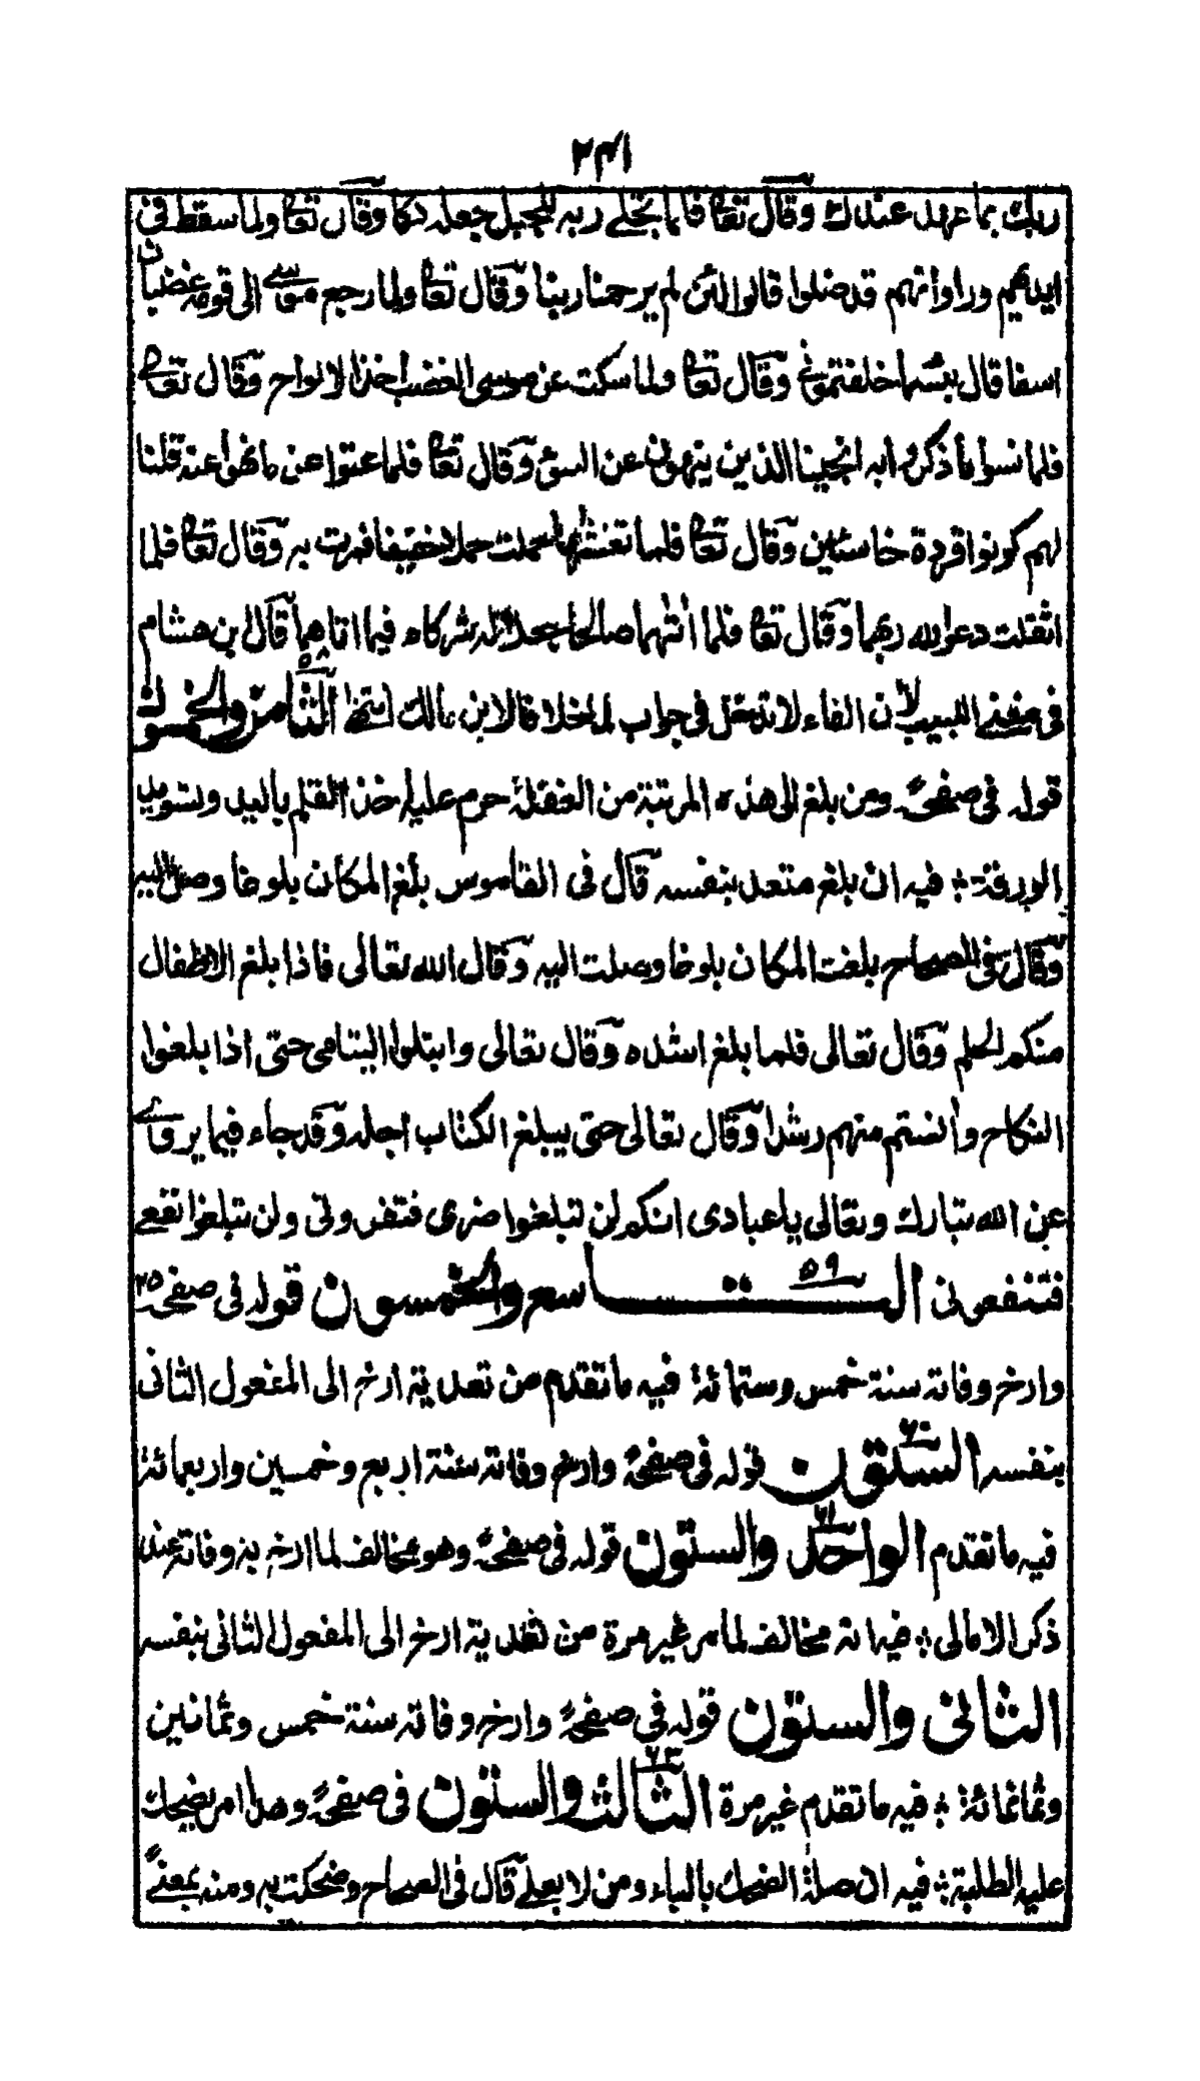 ٢٣١
ربك بما عهد عندك وقال تعالى فلما تجلى ربه للجبل جعله دكا وقال تعالى ولما سقط فى
ايديهم وراوا انهم قد ضلوا قالوا لئن لم يرحمنا ربنا وقال تعالى ولما رجع موسى الى قومه غضبان
اسفا قال بئسما خلفتمونى وقال تعالى ولما سكت عن موسى الغضب اخذ الالواح وقال تعالى
فلما نسوا ما ذكروا به انجينا الذين ينهون عن السوء وقال تعالى فلما عتوا عن ما نهوا عنه قلنا
لهم كونوا قردة خاسئين وقال تعالى فلما تغشها حملت حملا خفيفا فمرت به وقال تعالى فلما
اثقلت دعوا الله ربهما وقال تعالى فلما اٰتٰهما صالحا جعلا له شركاء فيما اتاهما قال ابن هشام
فى مغنى اللبيب لان الفاء لا تدخل فى جواب لما خلافا لابن مالك انتهى الثامن والخمسون ٥٨
قوله فى صفحة ومن بلغ الى هذه المرتبة من الغفلة حرم عليه اخذ القلم باليد وتسويد
الورقة ؞ فيه ان بلغ متعد بنفسه قال فى القاموس بلغ المكان بلوغا وصل اليه
وقال فى الصحاح بلغت المكان بلوغا وصلت اليه وقال الله تعالى فاذا بلغ الاطفال
منكم الحلم وقال تعالى فلما بلغ اشده وقال تعالى وابتلوا اليتامى حتى اذا بلغوا
النكاح واٰنستم منهم رشدا وقال تعالى حتى يبلغ الكتاب اجله وقد جاء فيما يروى
عن الله تبارك وتعالى يا عبادى انكم لن تبلغوا ضرى فتضرونى ولن تبلغوا نفعى
فتنفعونى التاسع والخمسون ٥٩ قوله فى صفحة ٢٥
وارخ وفاته سنة خمس وستمائة فيه ما تقدم من تعدية ارخ الى المفعول الثانى
بنفسه الستون ٦٠ قوله فى صفحة وارخ وفاته سنة اربع وخمسين واربعمائة
فيه ما تقدم الواحد والستون ٦١ قوله فى صفحة وهو مخالف لما ارخ به وفاته عند
ذكر الامالى ؞ فيه انه مخالف لما مر غير مرة من تعدية ارخ الى المفعول الثانى بنفسه
الثانى والستون قوله فى صفحة وارخ وفاته سنة خمس وثمانين
وثمانمائة ؞ فيه ما تقدم غير مرة الثالث والستون ٦٣ فى صفحة وهذا امر يضحك
عليه الطلبة ؞ فيه ان صلة الضحك بالباء ومن لا بعلى قال فى الصحاح وضحكت به ومنه بمعنى